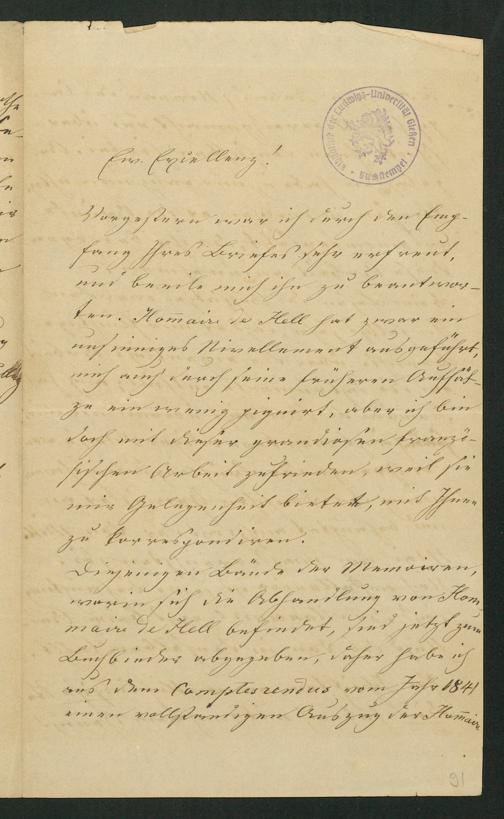 Ew. Excellenz!
Vorgestern war ich durch den Emp-
fang Ihres Briefes sehr erfreut,
und beeile mich ihn zu beantwor-
ten. Homaire de Hell hat zwar ein
unsinniges Nivellement ausgeführt,
mich auch durch seine früheren Aufsät-
ze ein wenig piquirt, aber ich bin
doch mit dieser grandiosen franzö-
sischen Arbeit zufrieden, weil sie
mir Gelegenheit bietet, mit Ihnen
zu korrespondiren.
Diejenigen Bände der Memoiren,
worin sich die Abhandlung von Hom
maire de Hell befindet, sind jetzt zum
Buchbinder abgegeben, daher habe ich
aus dem Comptes rendus vom Jahr 1841
einen vollständigen Auszug der Homaire
91
der Ludwigs-Universität Gießen